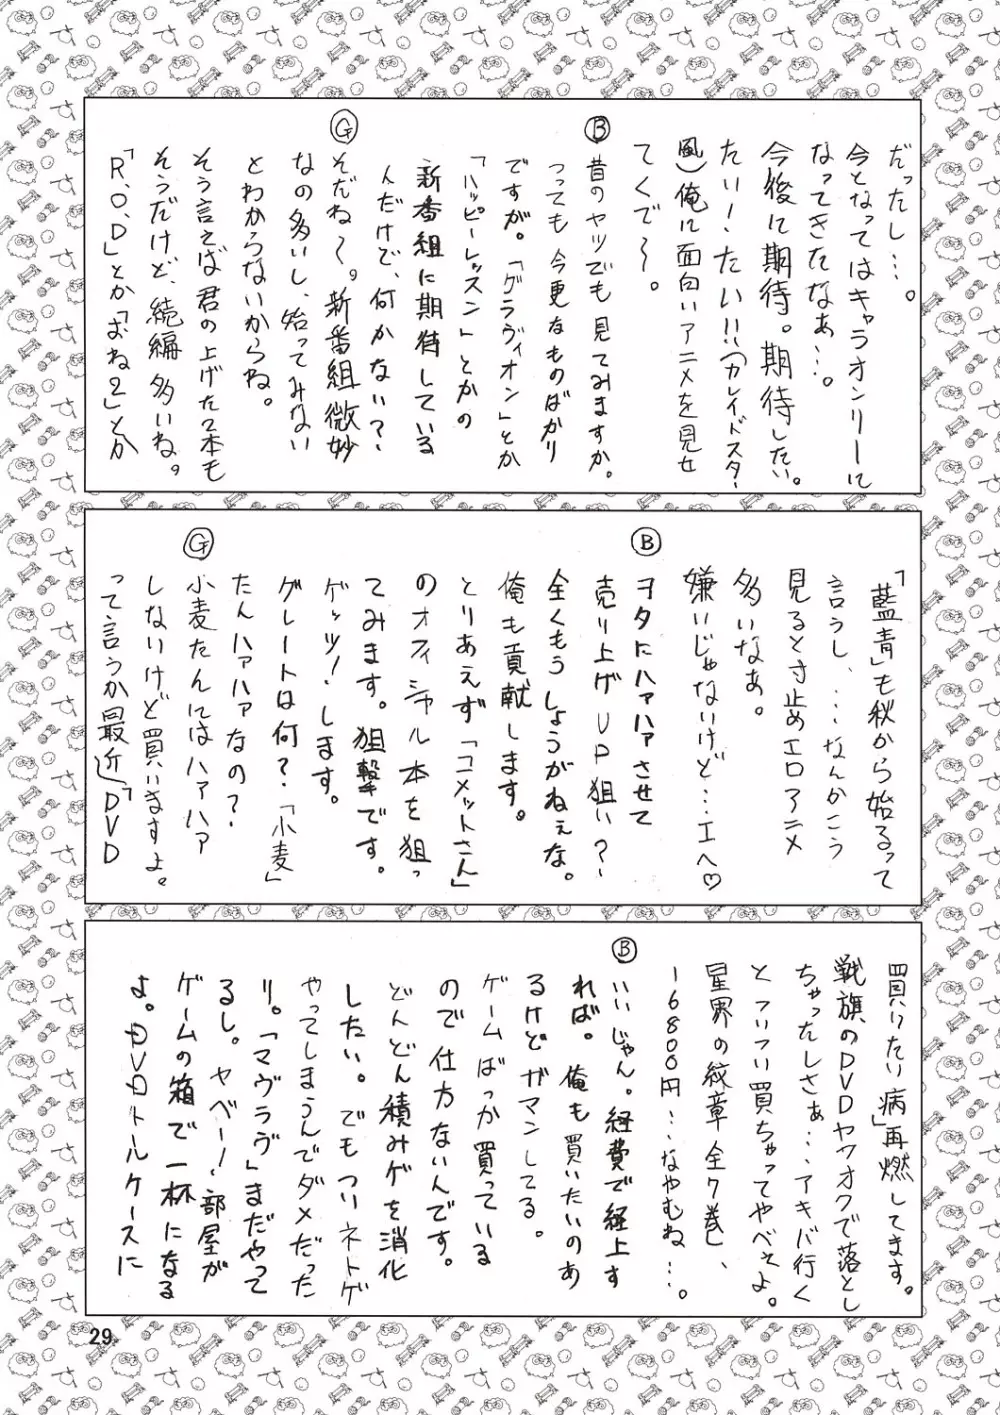 だったし…。
今となってはキャラオンリーに
なってきたなぁ…。
今後に期待。期待したい。
たい！たい!!（カレイドスター
風）俺に面白いアニメを見せ
てくで〜。
Ⓑ
昔のヤツでも見てみますか。
っつっても今更なものばかり
ですが。「グラヴィオン」とか
「ハッピーレッスン」とかの
新番組に期待している
んだけど、何かない？
Ⓖ
そだね〜。新番組微妙
なの多いし、始ってみない
とわからないからね。
そう言えば君の上げた2本も
そうだけど、続編多いね。
「R.O.D」とか「おね2」とか
「藍青」も秋から始るって
言うし、…なんかこう
見ると寸止めエロアニメ
多いなぁ。
嫌いじゃないけど…エヘ♡
Ⓑ
ヲタにハァハァさせて
売り上げUP狙い？
全くもうしょうがねぇな。
俺も貢献します。
とりあえず「コメットさん」
のオフィシャル本を狙っ
てみます。狙撃です。
ゲッツ！します。
グレートは何？「小麦」
たんハァハァなの？
Ⓖ
小麦たんにはハァハァ
しないけど買いますよ。
って言うか最近「DVD
買いたい病」再燃してます。
戦旗のDVDヤフオクで落とし
ちゃったしさぁ…アキバ行く
とついつい買っちゃってやべぇよ。
星界の紋章全7巻し、
ー6800円…なやむね…。
Ⓑ
いいじゃん。経費で経上す
れば。俺も買いたいのあ
るけどガマンしてる。
ゲームばっか買っている
ので仕方ないんです。
どんどん積みゲを消化
したい。でもついネトゲ
やってしまうんでダメだった
り。「マヴラヴ」まだやって
るし。ヤベー！部屋が
ゲームの箱で一杯になる
よ。DVDトルケースに
29